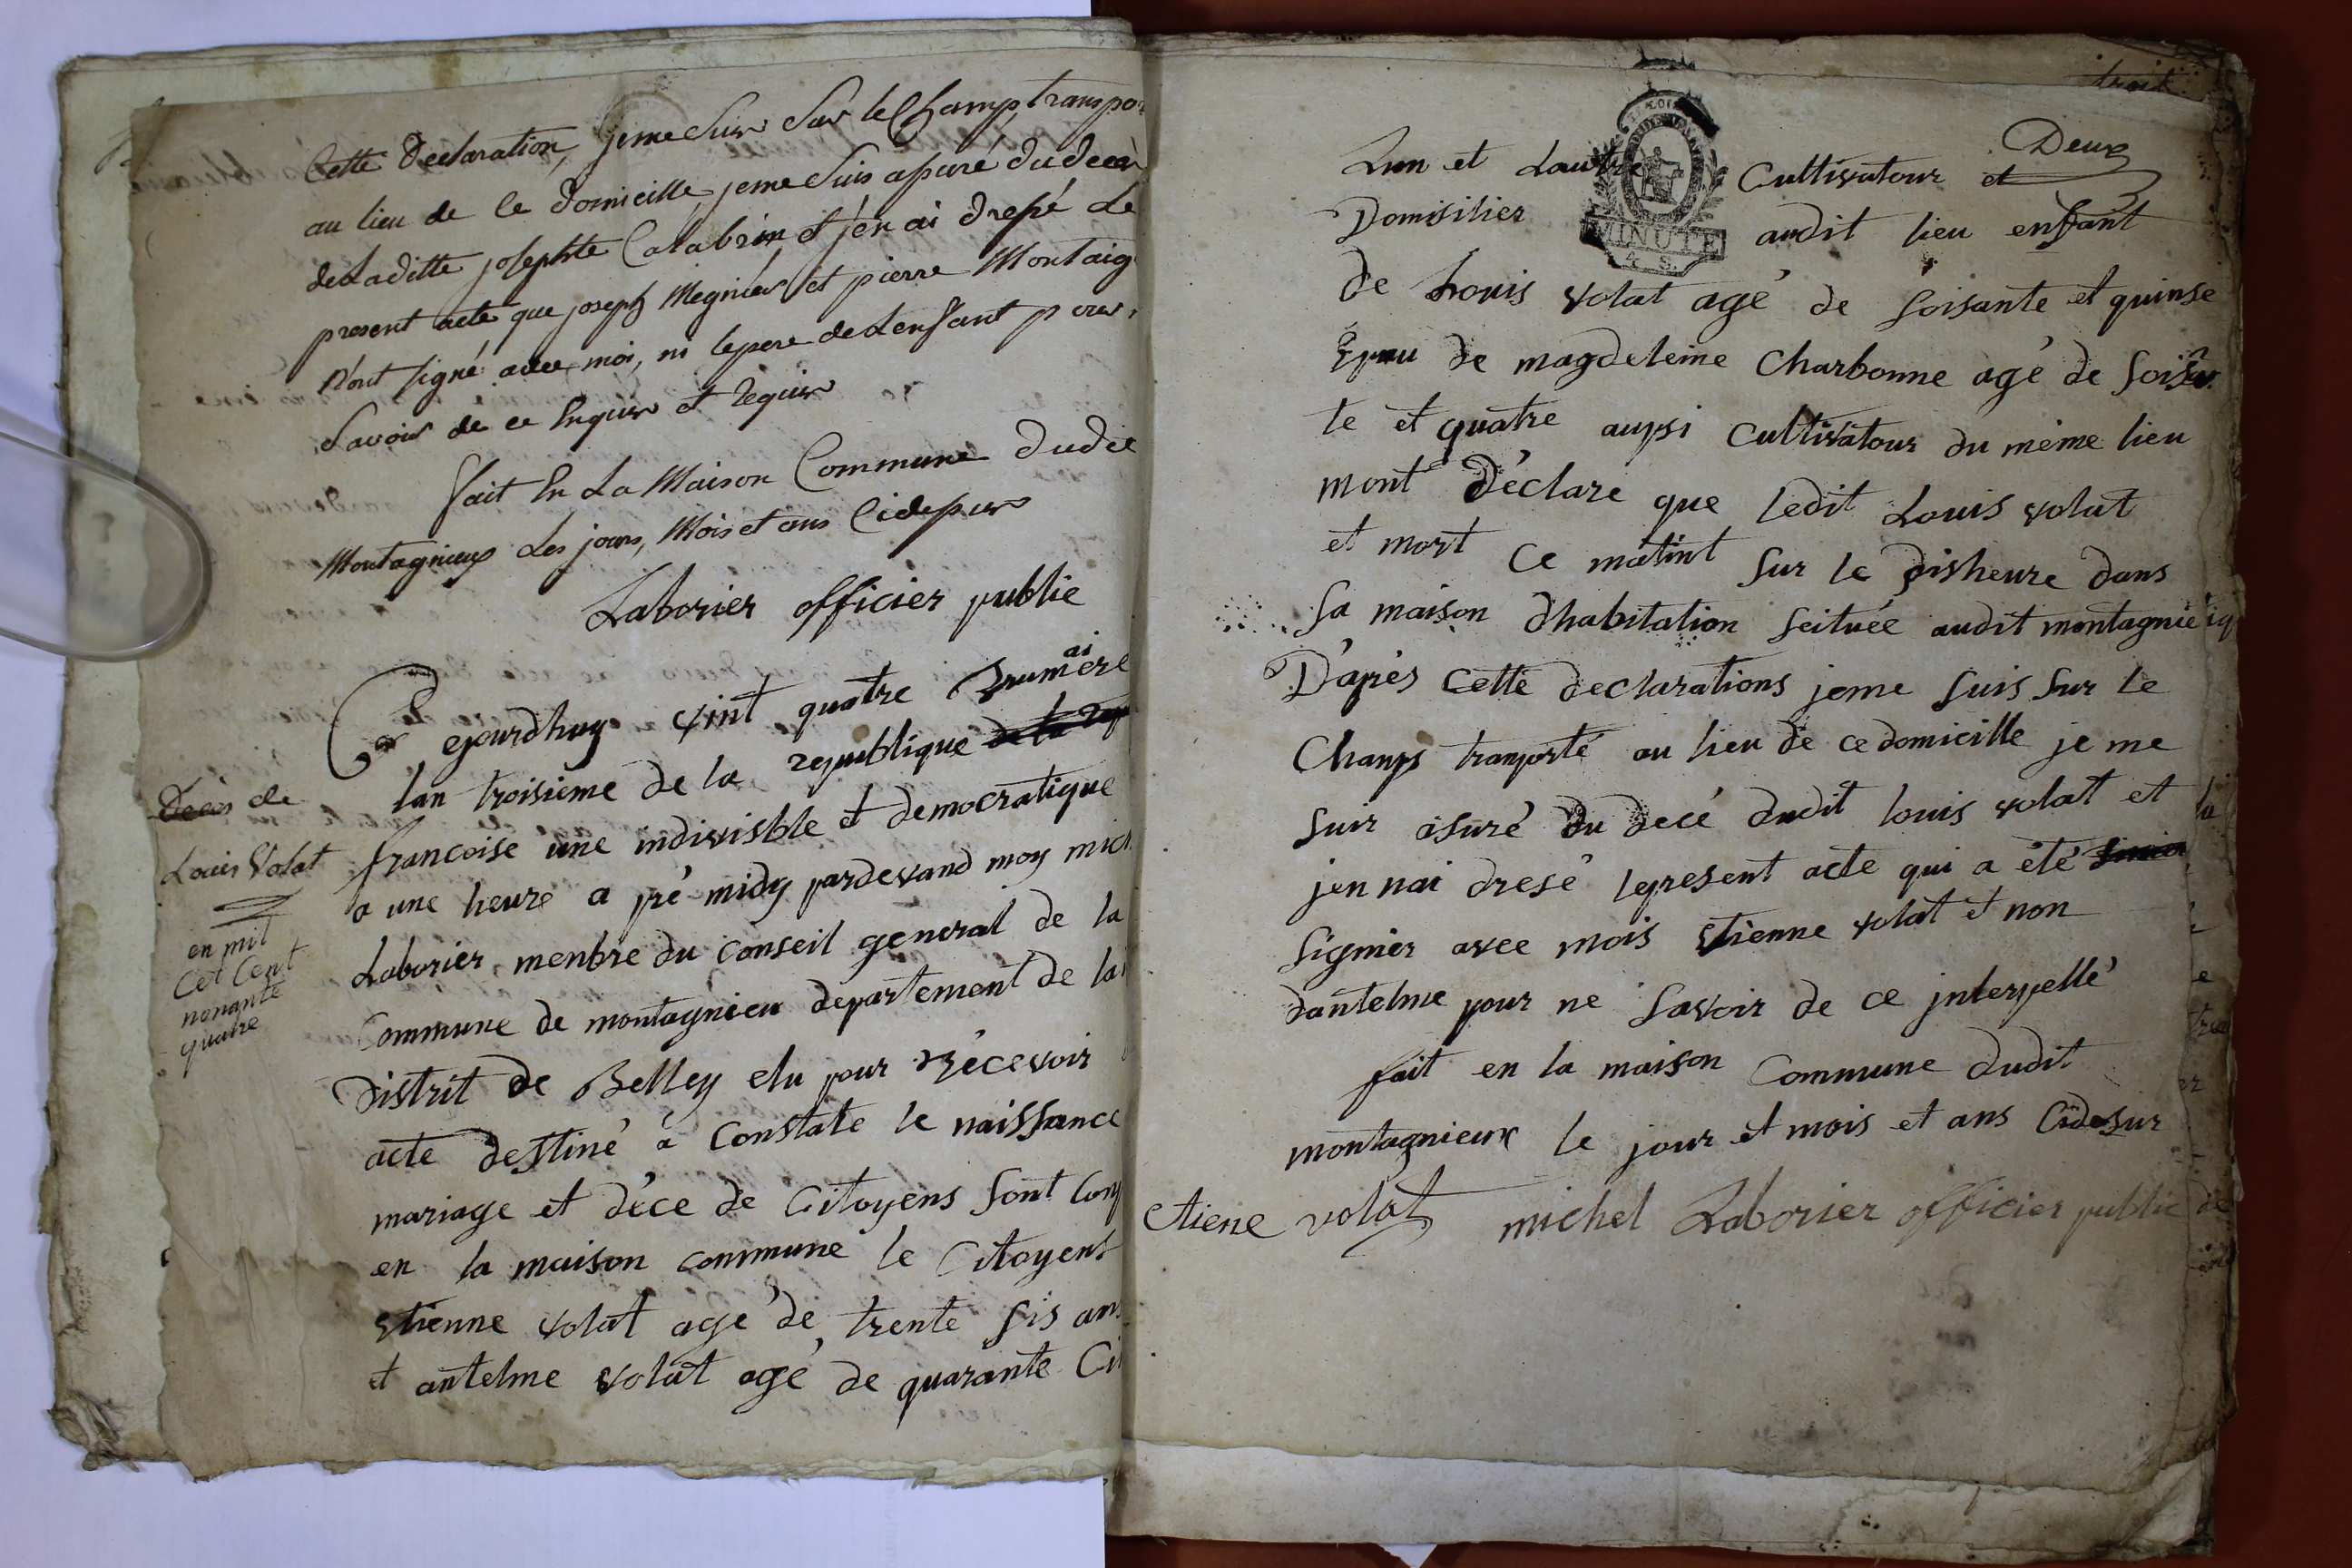 Cette Declaration, jeme Suis Sur le Champ, transpo
au lieu de ce Domicille, jeme Suis assuré du decès
de Laditte josephte Calabrin et j'en ai dressé Le
present acte que joseph Megnier et pierre Montaig
n'ont signé avec moi, ni le pere de Lenfant pour,
Savoir de ce Enquis et Requis
fait En La Maison Commune dudit
Montagnieux Les jours, Mois et ans Cidessus
Laborier officier public
Cejourdhuy vint quatre Brumaire
lan troisieme de la republique de la rep
francoise une indivisible et democratique
a une heure a pré midy pardevand moy mich
Laborier menbre du Conseil general de la
Commune de montagnieu departement de la
Distrit de Belley elu pour Récevoir
acte destiné à Constate le naissance
mariage et déce de Citoyens Sont Com
en la maison commune le Citoyens
Etienne volat agé de trente sis ans
et antelme volat agé de quarante Ci
Deces de
Louis Volat
en mil
Cet Cent
nonante
quatre
troit
Deux
Lun et Lautre Cultivatour et
MINUTE
4. S.
Domisilier audit lieu enfant
de Louis volat agé de soisante et quinse
Epau de magdeleine Charbonne agé de soisan
te et quatre aupsi Cultivatour du même lieu
mont Déclare que ledit Louis volat
et mort Ce matint sur le disheure dans
sa maison dhabitation scituée audit montagnieu
D'aprés Cette declarations jeme suis sur le
Champs tranporté au lieu de ce domicille je me
suir asuré du decé dudit louis volat et
jen nai dresé lepresent acte qui a été
signier avec mois Etienne volat et non
dantelme pour ne savoir de ce jnterpellé
fait en la maison Commune dudit
montagnieux le jour et mois et ans Cidesur
etiene volat michel Laborier officier public